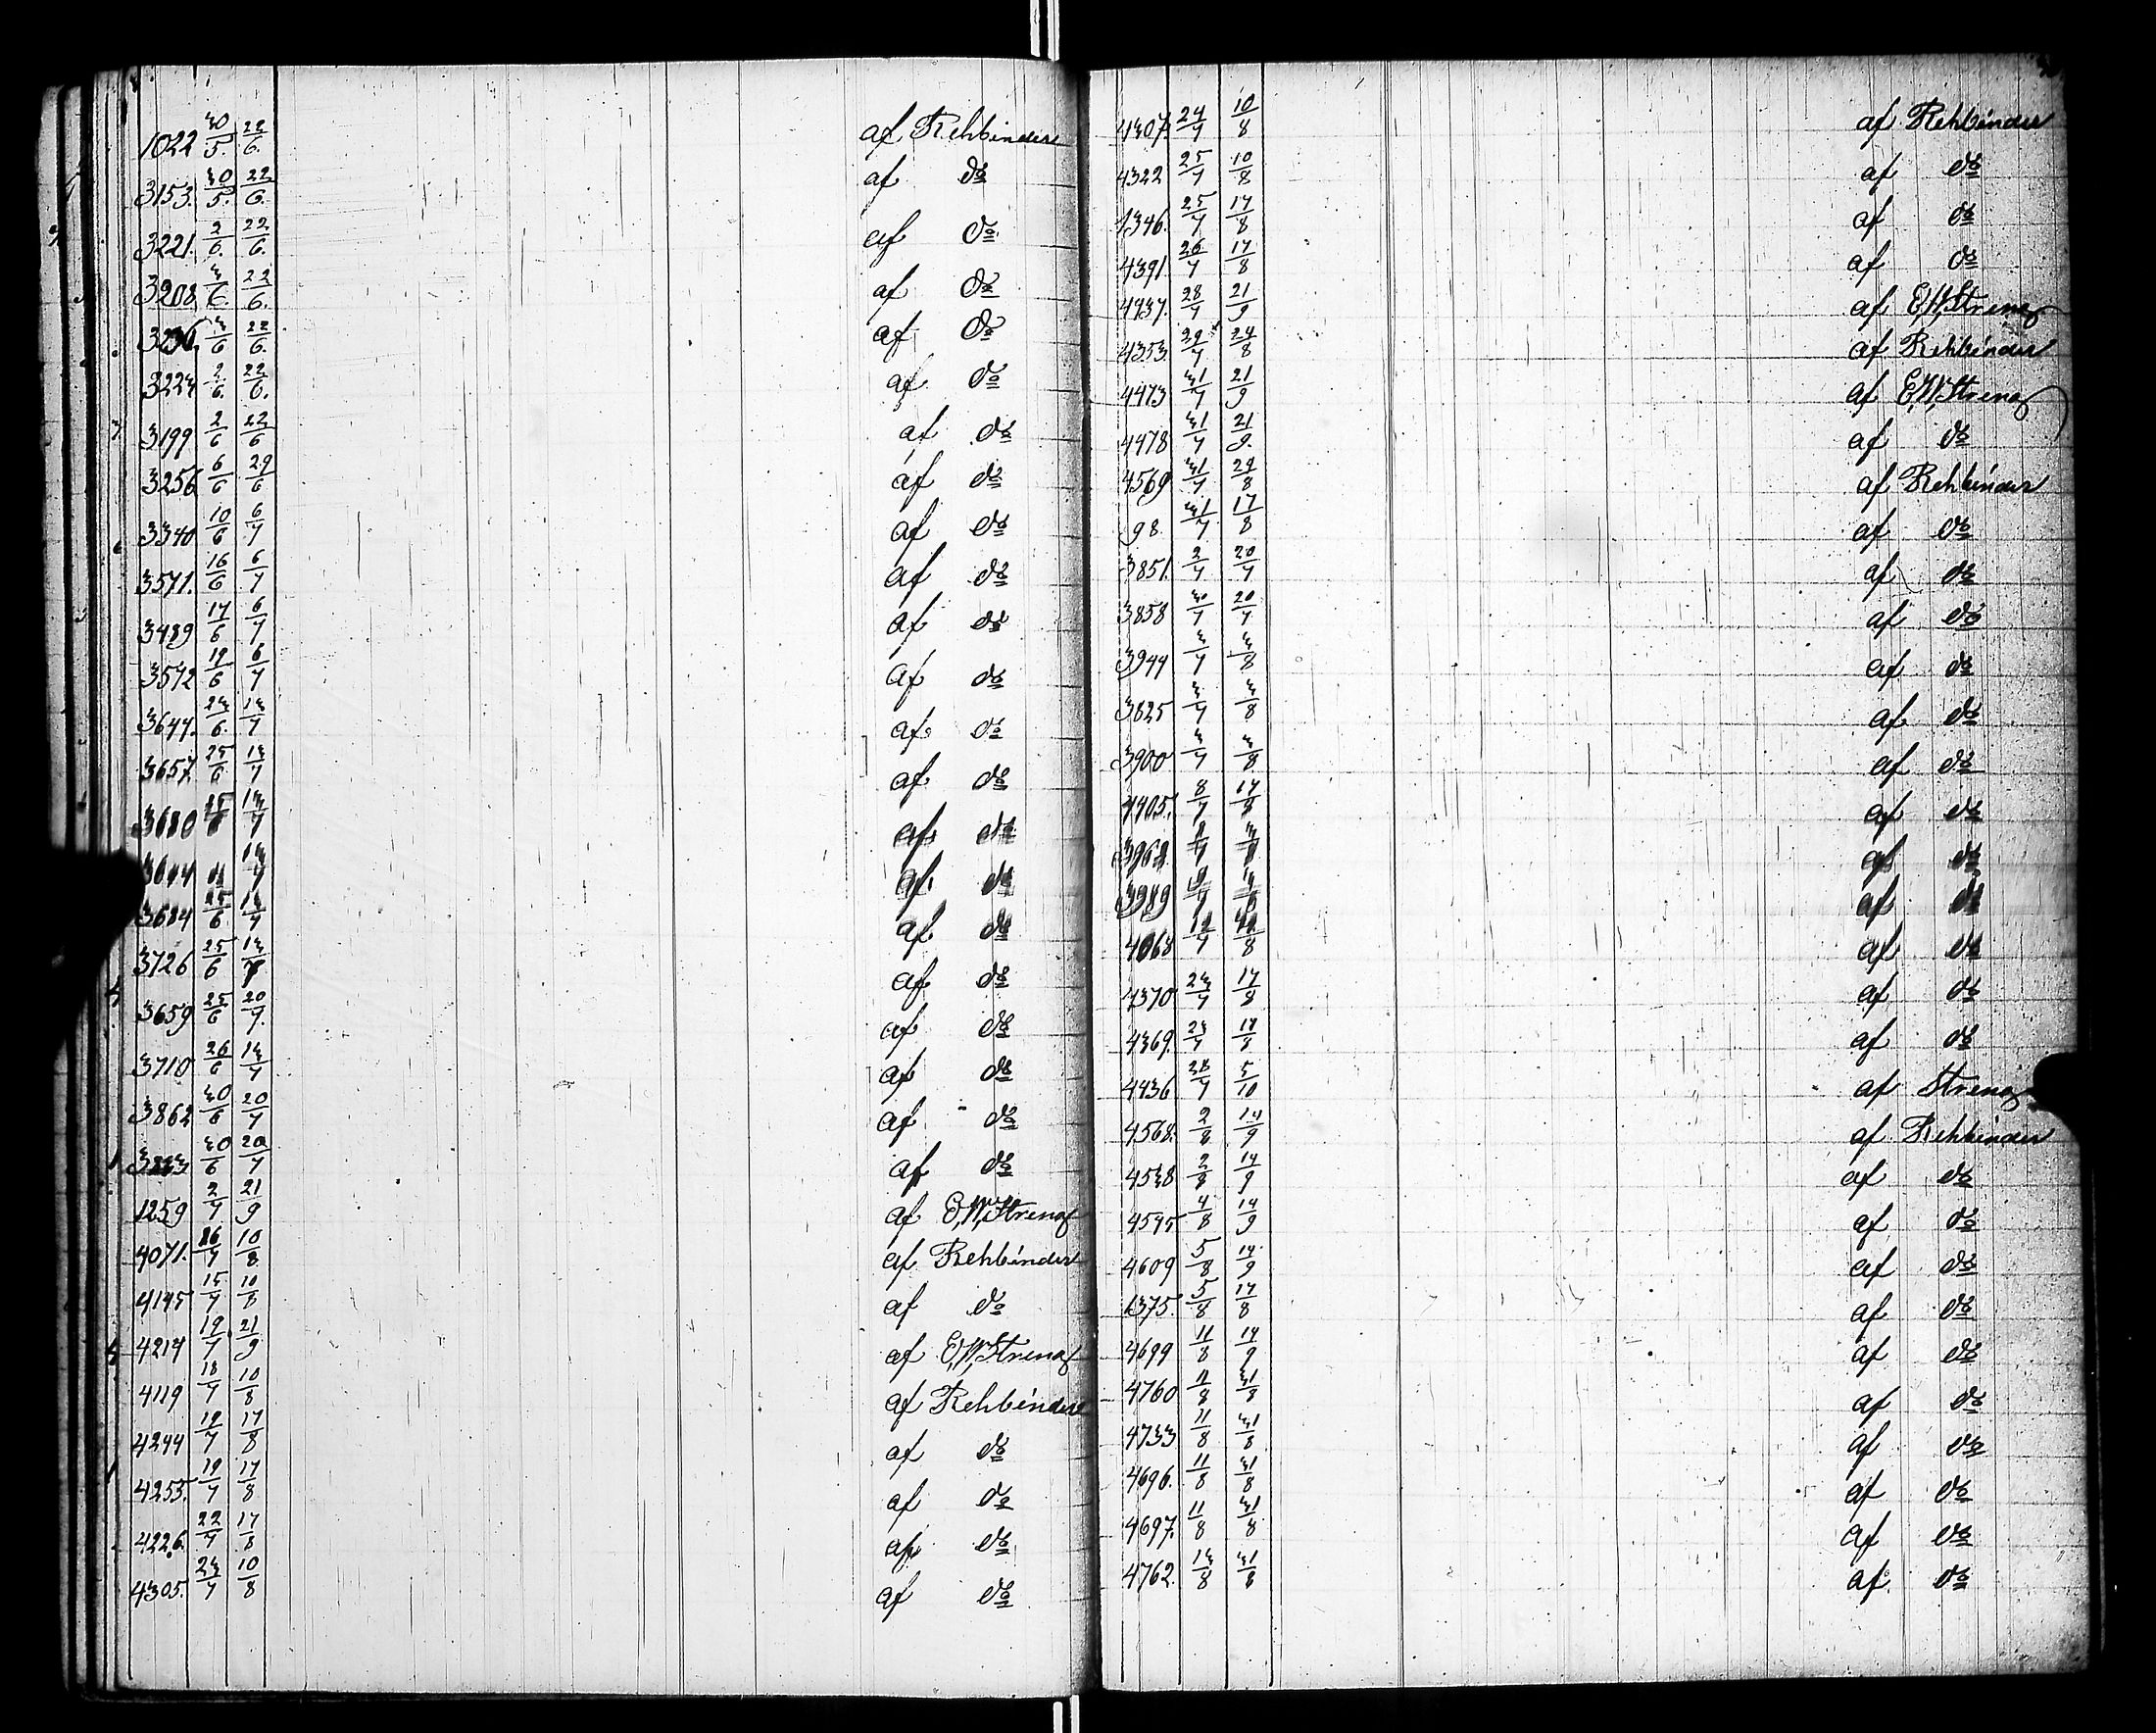 1022 30/5. 22/6. af Rehbinder
3153. 30/5. 22/6. af do
3221. 2/6. 22/6. af do
3208 3/6. 22/6. af do
3/6 22/6. af do
3224 2/6. 22/6. af do
3199 2/6 22/6 af do
3256 6/6 29/6 af do
3340 10/6 6/7 af do
3571. 16/6 6/7 af do
3489 17/6 6/7 af do
3572 19/6 6/7 af do
3647. 23/6. 13/7 af do
3657. 25/6 13/7 af do
3680 13/7 af do
3644 13/7 af do
3684 25/6. 13/7 af do
3726 25/6 13/7 af do
3659 25/6 20/7. af do
3710 26/6 13/7 af do
3862 30/6 20/7 af do
30/6 20/7 af do
1259 2/7 21/9 af E,W,Streng
4071. 16/7 10/8 af Rehbinder
4145 15/7 10/8 af do
4214 19/7 21/9 af E,W,Streng
4119 18/7 10/8 af Rehbinder
4244 19/7 17/8 af do
4255. 19/7 17/8 af do
4226. 22/7 17/8 af do
4305. 23/7 10/8 af do
4307. 24/7 10/8 af Rehbinder
4322 25/7 10/8 af do
1346. 25/7 17/8 af do
4391. 26/7 17/8 af do
4437. 28/7 21/9 af E,W,Streng
4353. 29/7 24/8 af Rehbinder
4473 31/7 21/9 af E,W,Streng
4478 31/7 21/9. af do
4569 31/7 24/8 af Rehbinder
98. 31/7 17/8 af do
3851. 2/7 20/7 af do
3858 30/7 20/7 af do
3944 3/7 3/8 af do
3825 3/7 3/8 af do
3900 3/7 3/8 af do
4405. 8/7 17/8 af do
af do
3989 af do
4068 12/7 af do
4370 23/7 17/8 af do
4369. 23/7 17/8 af do
4436 28/7 5/10 af Streng
4568. 2/8 14/9 af Rehbinder
4538 2/8 14/9 af do
4545 4/8 14/9 af do
4609 5/8 14/9 af do
1375. 5/8 17/8 af do
4699 11/8 14/9 af do
4760 11/8 31/8 af do
4733 11/8 31/8 af do
4696. 11/8 31/8 af do
4697. 11/8 31/8 af do
4762. 13/8 31/8 af do